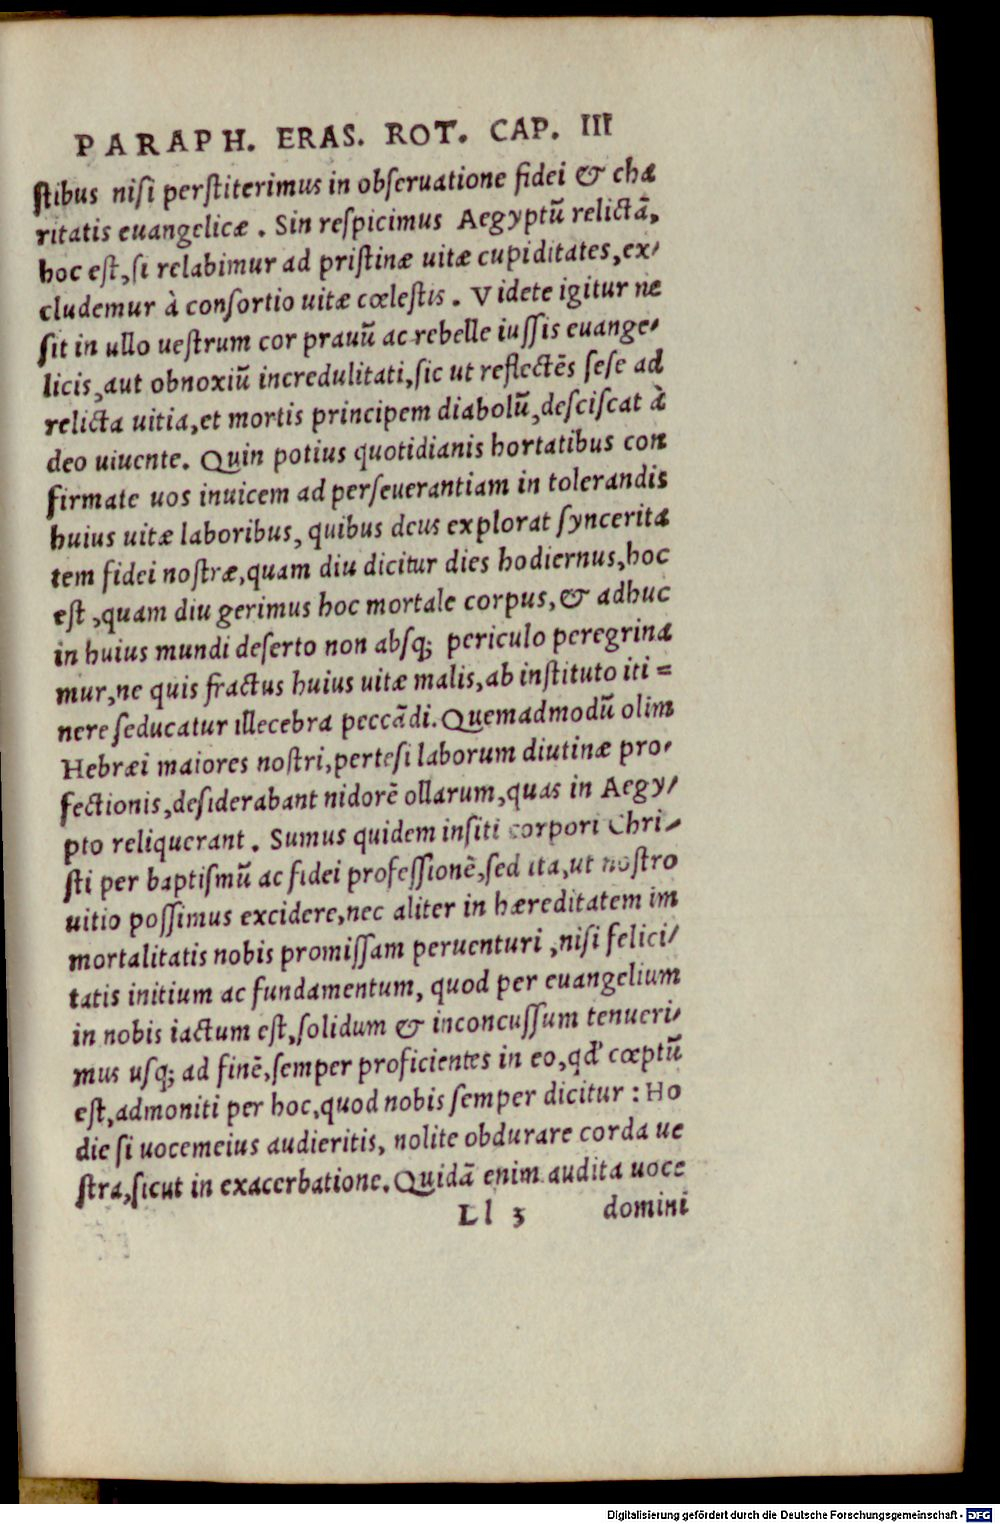 PARAPH. ERAS. ROT. CAP. III
ſtibus niſi perſtiterimus in obſeruatione fidei & cha
ritatis euangelicæ. Sin reſpicimus Aegyptũ relictã,
hoc eſt, ſi relabimur ad priſtinæ uitæ cupiditates, ex-
cludemur à conſortio uitæ cœleſtis. Videte igitur ne
ſit in ullo ueſtrum cor prauũ ac rebelle iuſſis euange-
licis, aut obnoxiũ incredulitati, ſic ut reflectẽs ſeſe ad
relicta uitia, et mortis principem diabolũ, deſciſcat à
deo uiuente. Quin potius quotidianis hortatibus con
firmate uos inuicem ad perſeuerantiam in tolerandis
huius uitæ laboribus, quibus deus explorat ſyncerita
tem fidei noſtræ, quam diu dicitur dies hodiernus, hoc
eſt, quam diu gerimus hoc mortale corpus, & adhuc
in huius mundi deſerto non abſq; periculo peregrina
mur, ne quis fractus huius uitæ malis, ab inſtituto iti=
nere ſeducatur illecebra peccãdi. Quemadmodũ olim
Hebræi maiores noſtri, perteſi laborum diutinæ pro-
fectionis, deſiderabant nidorẽ ollarum, quas in Aegy-
pto reliquerant. Sumus quidem inſiti corpori Chri-
ſti per baptiſmũ ac fidei profeſſionẽ, ſed ita, ut noſtro
uitio poſſimus excidere, nec aliter in hæreditatem im
mortalitatis nobis promiſſam peruenturi, niſi felici-
tatis initium ac fundamentum, quod per euangelium
in nobis iactum eſt, ſolidum & inconcuſſum tenueri-
mus uſq; ad finẽ, ſemper proficientes in eo, qd' cœptũ
eſt, admoniti per hoc, quod nobis ſemper dicitur: Ho
die ſi uocem eius audieritis, nolite obdurare corda ue
ſtra, ſicut in exacerbatione. Quidã enim audita uoce
Ll 3 domini
Digitalisierung gefördert durch die Deutsche Forschungsgemeinschaft - DFG